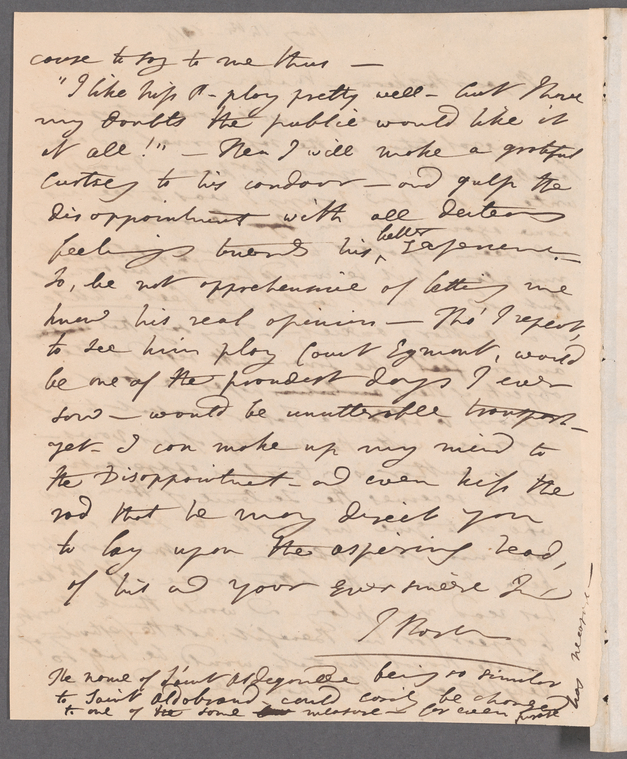 cause to say to me thus —
"I like this play pretty well — but I have
my doubts the public would like it
at all!" — Then I will make a grateful
Curtsey to his candour — and gulp the
disappointment with all decteous
feelings towards his better Experience —
So, be not apprehensive of letting me
know his real opinion — Tho' I repeat,
to see him play Count Egmont, would
be one of the proudest days I ever
saw — would be unutterable transport —
yet — I can make up my mind to
the Disappointment — and even kiss the
rod that he may direct you
to lay upon the aspiring head,
of his ad your Ever sincere
The name of Saint Aldegonde being so similar
to Saint Aldobrand — could easily be changed
to one of the same measure — (or even
has necessary —